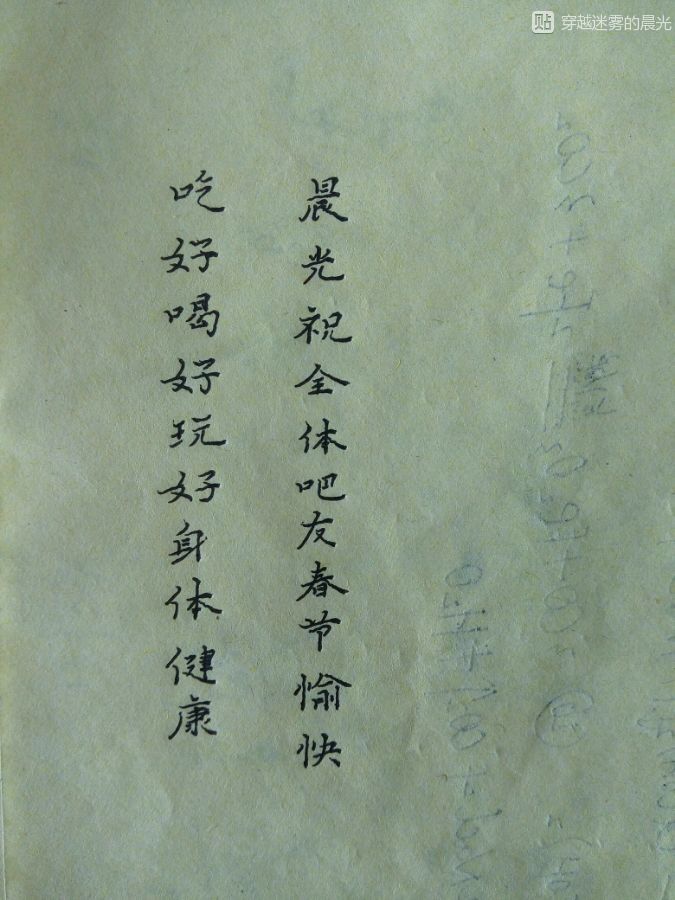 贴 穿越迷雾的晨光
晨光祝全体吧友春节愉快
吃好喝好玩好身体健康